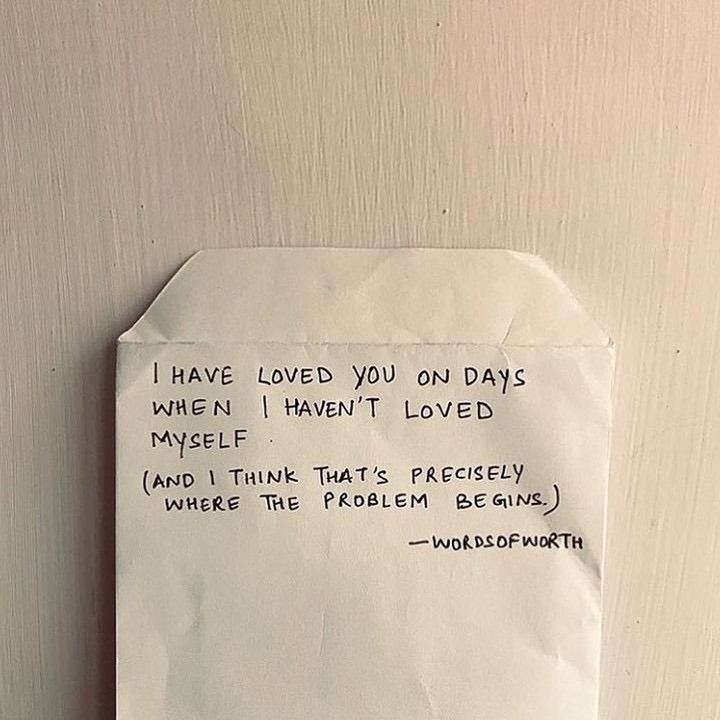 I HAVE LOVED YOU ON DAYS
WHEN I HAVEN'T LOVED
MYSELF.
(AND I THINK THAT'S PRECISELY
WHERE THE PROBLEM BEGINS.)
—WORDSOFWORTH